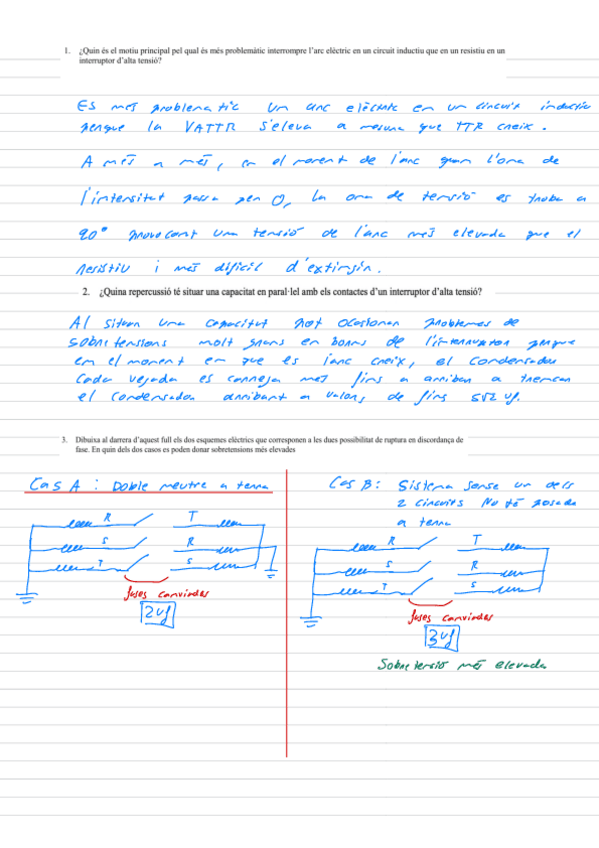 1. ¿Quin és el motiu principal pel qual és més problemàtic interrompre l'arc elèctric en un circuit inductiu que en un resistiu en un
interruptor d'alta tensió?
Es més problematic un arc elèctric en un circuit inductiu
perque la VATTR s'eleva a mesura que TTR creix.
A més a més, en el moment de l'arc quan l'ona de
l'intensitat passa per 0, la ona de tensió es troba a
90° provocant una tensió de l'arc més elevada que el
resistiu i més dificil d'extingir.
2. ¿Quina repercussió té situar una capacitat en paral·lel amb els contactes d'un interruptor d'alta tensió?
Al situar una capacitat pot ocasionar problemes de
sobretensions molt grans en borns de l'interruptor perque
en el moment en que es l'arc creix, el condensador
cada vegada es carrega més fins a arribar a trencar
el condensador arribant a valors de fins 5√2 Uf.
3. Dibuixa al darrera d'aquest full els dos esquemes elèctrics que corresponen a les dues possibilitat de ruptura en discordança de
fase. En quin dels dos casos es poden donar sobretensions més elevades
Cas A: Doble neutre a terra
R T
S R
T S
fases canviades
2Uf
Cas B: Sistema sense un dels
2 circuits No té posada
a terra
R T
S R
T S
fases canviades
3Uf
Sobretensió més elevada